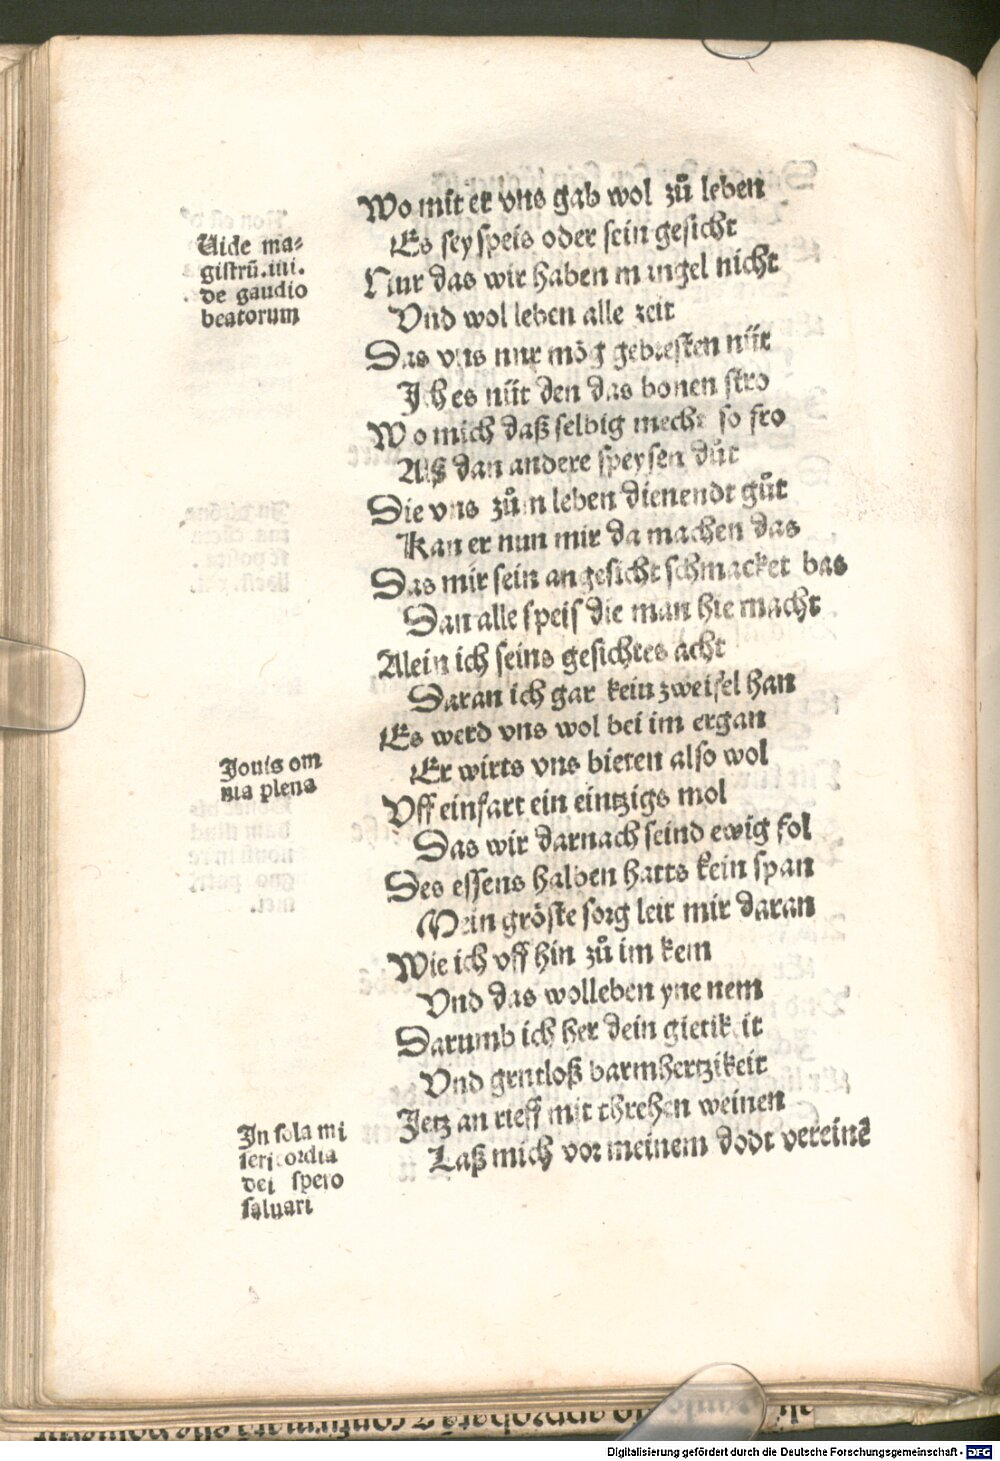 Wo mit er vns gab wol zuͦ leben
Es sey speis oder sein gesicht
Nur das wir haben mangel nicht
Vnd wol leben alle zeit
Das vns nur mög gebresten nüt
Ich es nüt den das bonen stro
Wo mich daß selbig mecht so fro
Alß dan andere speysen duͦt
Die vns zuͦm leben dienendt guͦt
Kan er nun mir da machen das
Das mir sein angesicht schmacket bas
Dan alle speiß die man hie macht
Alein ich seins gesichtes acht
Daran ich gar kein zweifel han
Es werd vns wol bei im ergan
Er wirts vns bieten also wol
Vff einfart ein eintzigs mol
Das wir darnach seind ewig fol
Des essens halben hatts kein span
Mein gröste sorg leit mir daran
Wie ich vff hin zuͦ im kem
Vnd das wolleben yne nem
Darumb ich her dein gietikeit
Vnd gruntloß barmhertzikeit
Jetz an rieff mit threhen weinen
Laß mich vor meinem dodt vereinē
Uide ma-
gistrū.iiii.
de gaudio
beatorum
Jouis om
nia plena
In sola mi
sericordia
dei spero
saluari
Digitalisierung gefördert durch die Deutsche Forschungsgemeinschaft - DFG